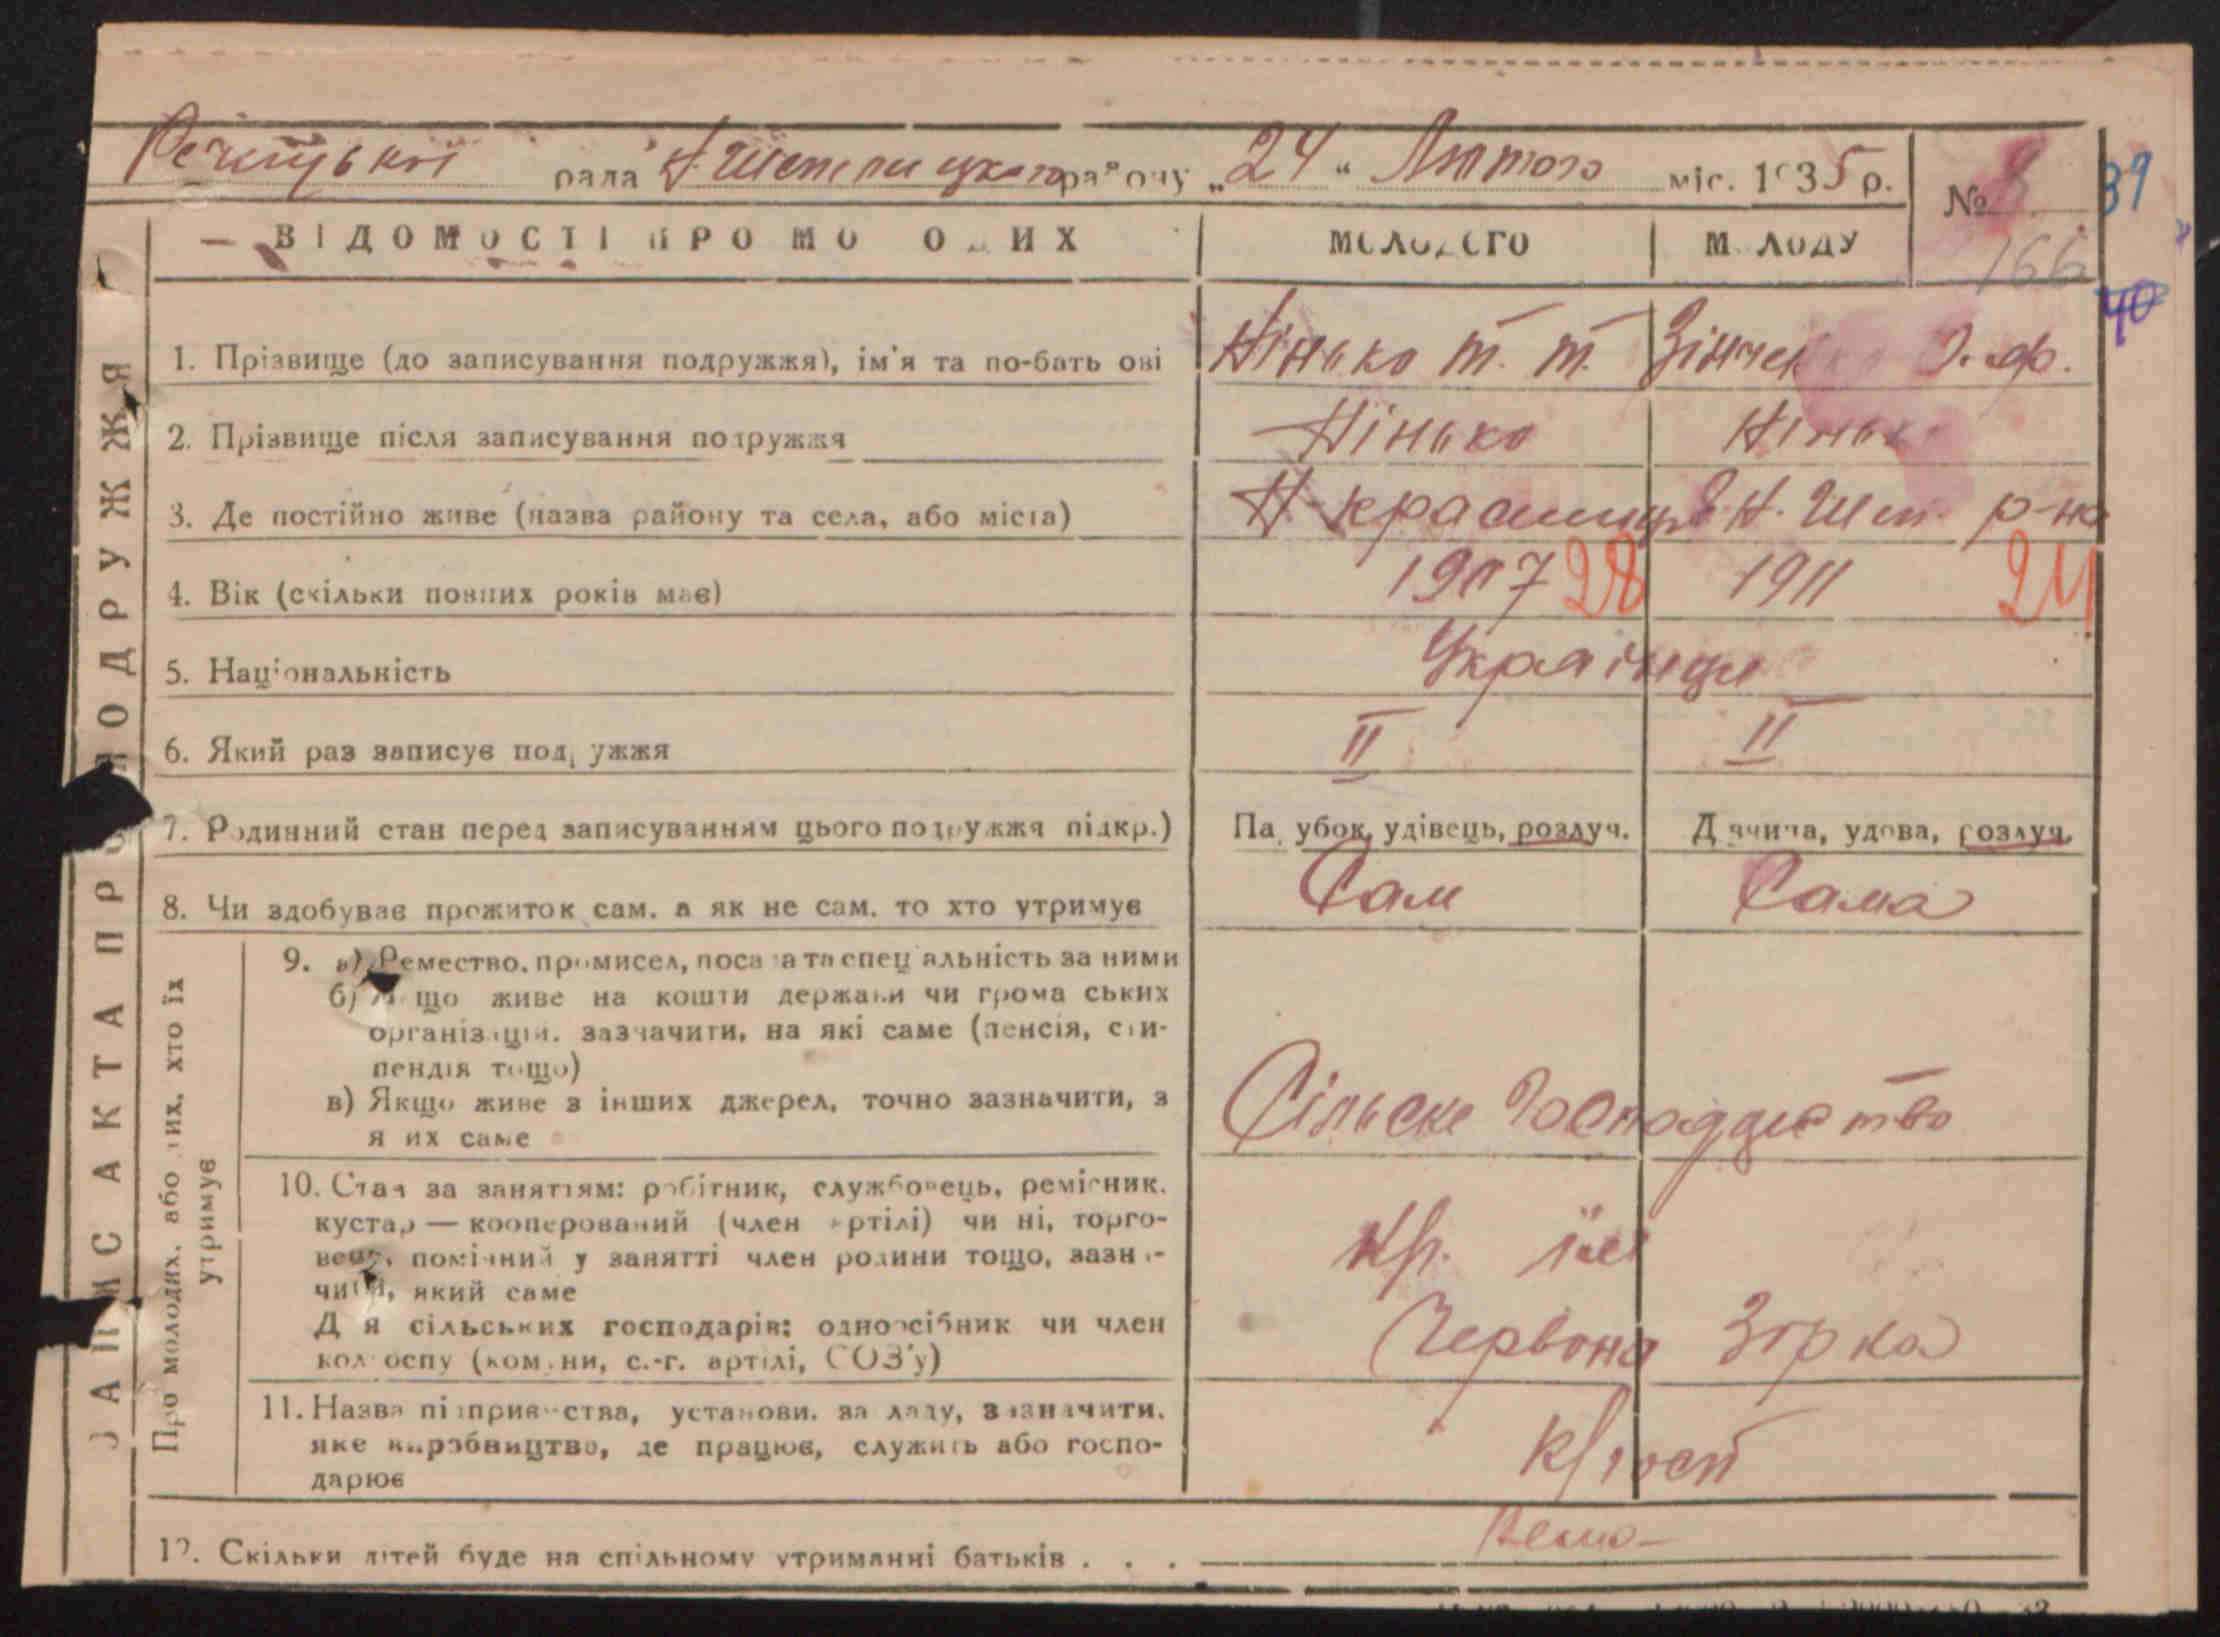 рада Н. Шепелицького району „24“ Лютого міс. 1935 р.
№ 8
39
166
40
ВІДОМОСТІ ПРО МОЛОДИХ МОЛОДОГО МОЛОДУ
ЗАПИС АКТА ПРО ПОДРУЖЖЯ
1. Прізвище (до записування подружжя), ім'я та по-батькові Нінько Т. Т. Зінченко Ф.
2. Прізвище після записування подружжя Нінько Нінько
3. Де постійно живе (назва району та села, або міста) Н. Шеп. р-на
4. Вік (скільки повних років має) 1907 28 1911 24
5. Національність Українци
6. Який раз записує подружжя II II
7. Родинний стан перед записуванням цього подружжя підкр.) Парубок, удівець, розлуч. Дівчина, удова, розлуч.
8. Чи здобуває прожиток сам. а як не сам. то хто утримує Сам Сама
Про молодих, або них, хто їх утримує
9. а) Ремество, промисел, посада та спеціальність за ними
б) Якщо живе на кошти держави чи громадських
організацій. зазначити, на які саме (пенсія, сти-
пендія тощо)
в) Якщо живе з інших джерел, точно зазначити, з
яких саме
Сільске
10. Стан за заняттям: робітник, службовець, ремісник.
кустар — кооперований (член артілі) чи ні, торго-
вець, помічний у занятті член родини тощо, зазна-
чити, який саме
Для сільських господарів: одноосібник чи член
колгоспу (комуни, с.-г. артілі, СОЗ'у)
Червона Зорка
11. Назва підприємства, установи. закладу, зазначити.
яке виробництво, де працює, служить або госпо-
дарює
12. Скільки дітей буде на спільному утриманні батьків . . .